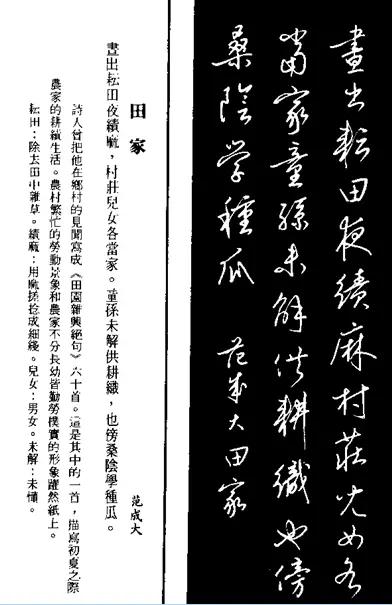 晝出耘田夜績麻村莊兒女各
當家童孫未解供耕織也傍
桑陰学種瓜 范成大田家
田家
范成大
晝出耘田夜績麻，村莊兒女各當家。童孫未解供耕織，也傍桑陰學種瓜。
詩人曾把他在鄉村的見聞寫成《田園雜興絕句》六十首。這是其中的一首，描寫初夏之際
農家的耕績生活。農村繁忙的勞動景象和農家不分長幼皆勤勞樸實的形象躍然紙上。
耘田：除去田中雜草。績麻：用麻搓捻成細綫。兒女：男女。未解：未懂。